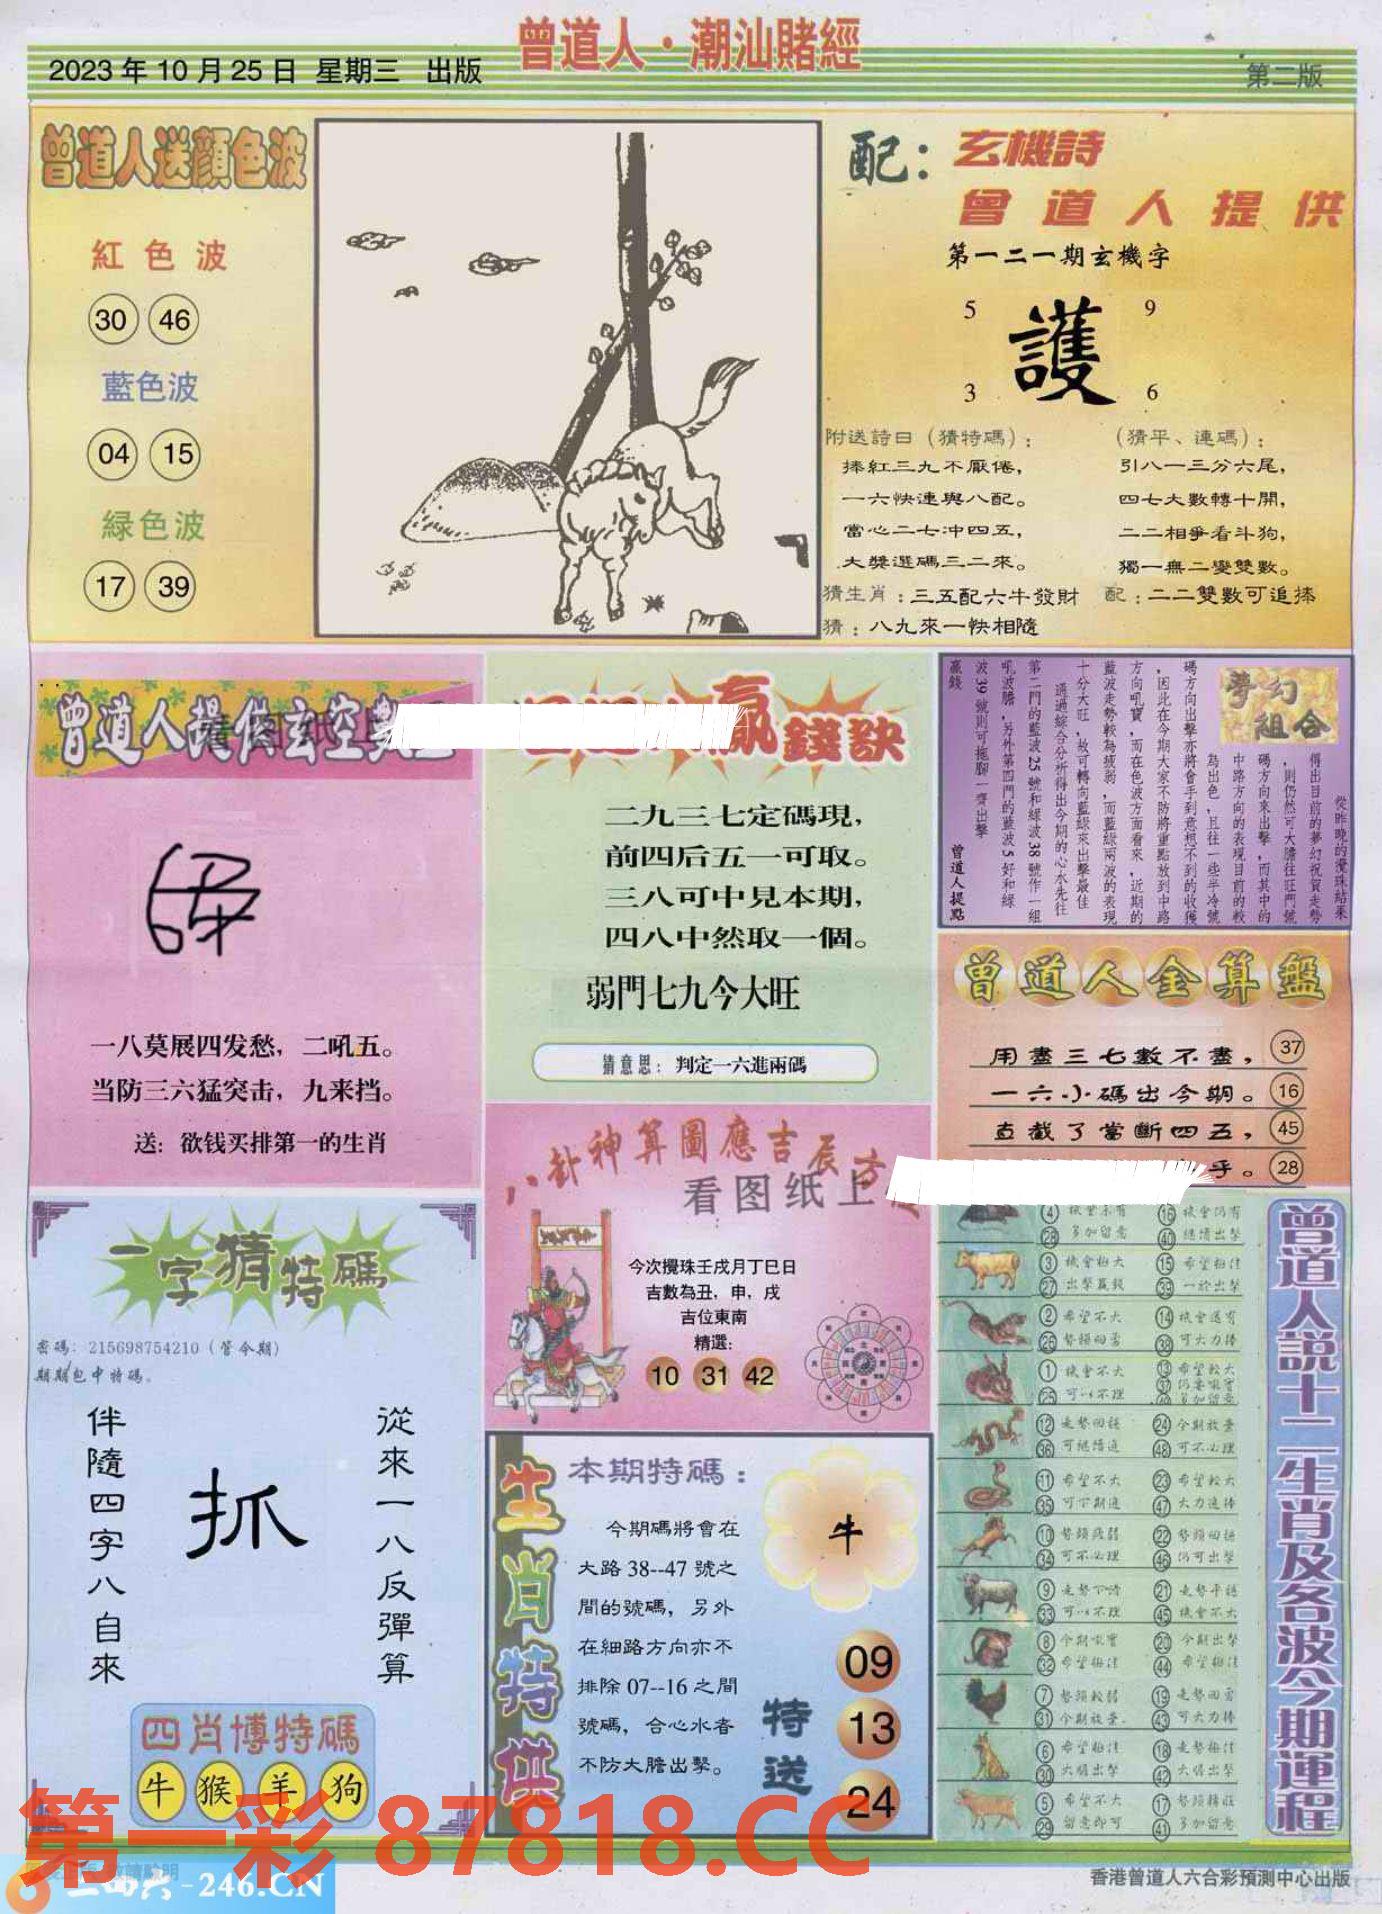 曾道人·潮汕賭經
2023年10月25日 星期三 出版
第二版
曾道人送顔色波
紅色波
30 46
藍色波
04 15
緑色波
17 39
配：玄機詩
曾道人提供
第一二一期玄機字
5 9
護
3 6
附送詩曰（猜特碼）：
捧紅三九不厭倦，
一六快連與八配。
當心二七冲四五，
大獎選碼三二來。
猜生肖：三五配六牛發財
猜：八九來一快相隨
（猜平、連碼）：
引八一三分六尾，
四七大數轉十開，
二二相爭看斗狗，
獨一無二變雙數。
配：二二雙數可追捧
曾道人提供玄空數
一八莫展四发愁，二吼五。
当防三六猛突击，九来挡。
送：欲钱买排第一的生肖
贏錢訣
二九三七定碼現，
前四后五一可取。
三八可中見本期，
四八中然取一個。
弱門七九今大旺
猜意思：判定一六進兩碼
夢幻組合
從昨晚的攪珠結果
得出目前的夢幻祝賀走勢
，則仍然可大膽往旺門號
碼方向來出擊，而其中的
中路方向的表現目前的較
為出色，且往一些半冷號
碼方向出擊亦將會手到意想不到的收獲
，因此在今期大家不防將重點放到中路
方向吼寶，而在色波方面看來，近期的
藍波走勢較為疲弱，而藍緑兩波的表現
十分大旺，故可轉向藍緑來出擊最佳
通過綜合分析得出今期的心水先往
第二門的藍波25號和緑波38號作一組
吼波膽，另外第四門的藍波5好和緑
波39號則可拖脚一齊出擊
贏錢
曾道人提點
曾道人金算盤
用盡三七數不盡， 37
一六小碼出今期。 16
直截了當斷四五， 45
乎。 28
八卦神算圖應吉辰方
看图纸上
今次攪珠壬戌月丁巳日
吉數為丑，申，戌
吉位東南
精選：
10 31 42
一字猜特碼
密碼：215698754210（管今期）
期期包中特碼。
從來一八反彈算
抓
伴隨四字八自來
四肖博特碼
牛 猴 羊 狗
生肖特供
本期特碼：
今期碼將會在
大路38--47號之
間的號碼，另外
在細路方向亦不
排除07--16之間
號碼，合心水者
不防大膽出擊。
牛
特送
09
13
24
曾道人説十二生肖及各波今期運程
4 16 機會仍有
28 多加留意 40 繼續出擊
3 機會極大 15 希望極佳
27 出擊贏錢 39 一於出擊
2 希望不大 14 機會還有
26 38 可大力捧
1 機會不大 13 希望較大
25 可以不理 37
12 24 今期放棄
36 可繼續追 48 可不必理
11 希望不大 23 希望較大
35 可下期追 47 大力追捧
10 22
34 可不必理 46 仍可出擊
9 走勢下滑 21 走勢平穩
33 可以不理 45 機會不大
8 今期吼寶 20 今期出擊
32 希望極佳 44 希望極佳
7 勢頭較弱 19
31 今期放棄 43 可大力捧
6 希望極佳 18 走勢極佳
30 大膽出擊 42 大膽出擊
5 希望不大 17
29 留意即可 41 多加留意
第一彩 87818.CC
二四六-246.CN
香港曾道人六合彩預測中心出版